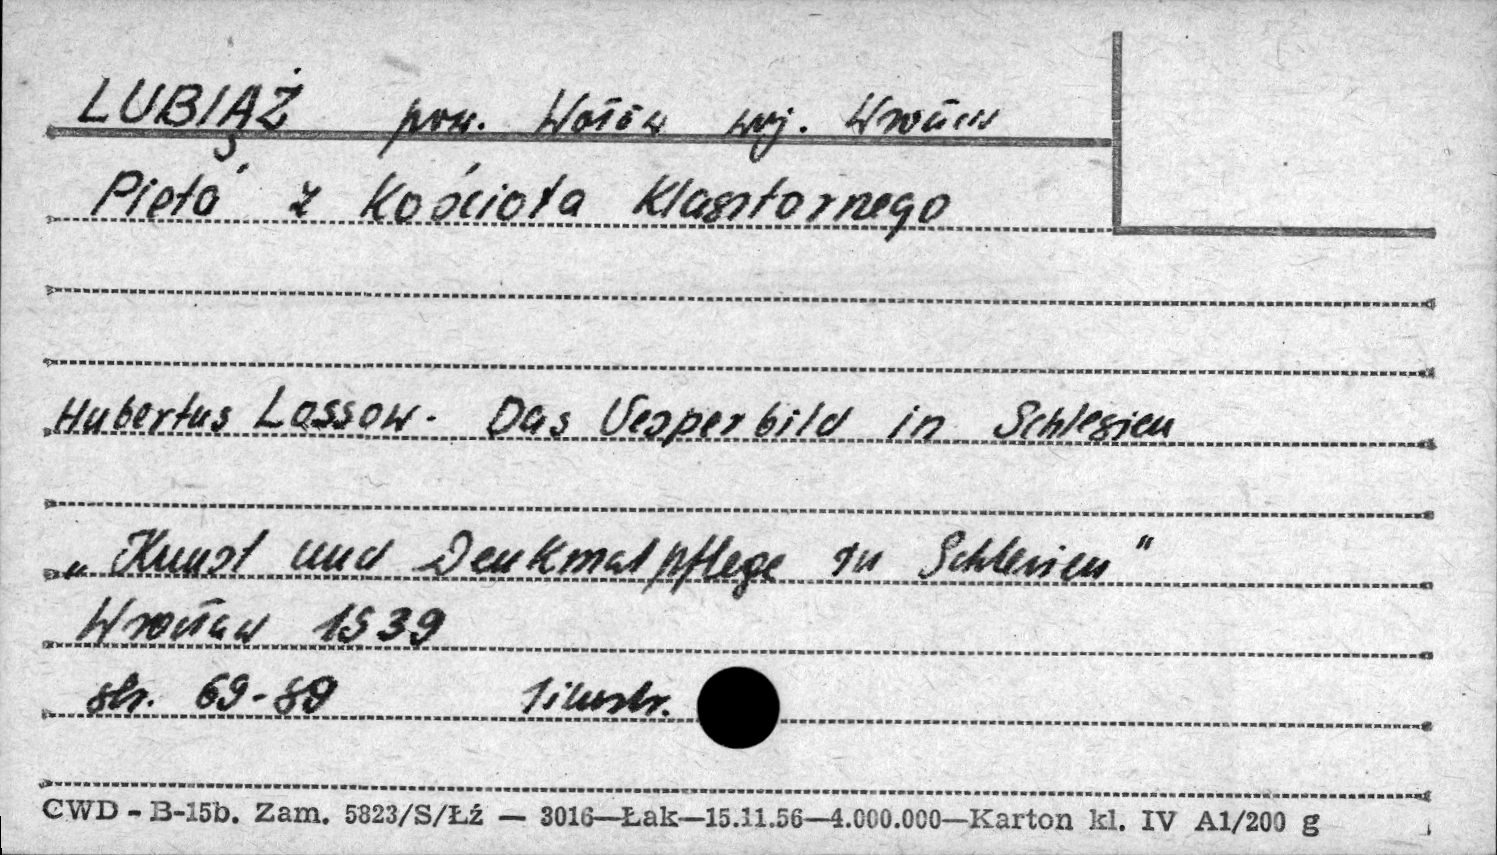 LUBIĄŻ pow. Wołów woj. Wrocław
Pietá z Kościoła Klasztornego
Hubertus Lossow. Das Vesperbild in Schlesien
„Kunst und Denkmalpflege in Schlesien"
Wrocław 1939
str. 69-89 1 ilustr.
CWD - B-15b. Zam. 5823/S/Łź — 3016—Łak—15.11.56—4.000.000—Karton kl. IV A1/200 g